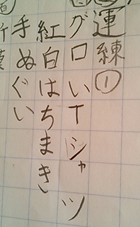 運練①
グロいTシャツ
紅白はちまき
手ぬぐい